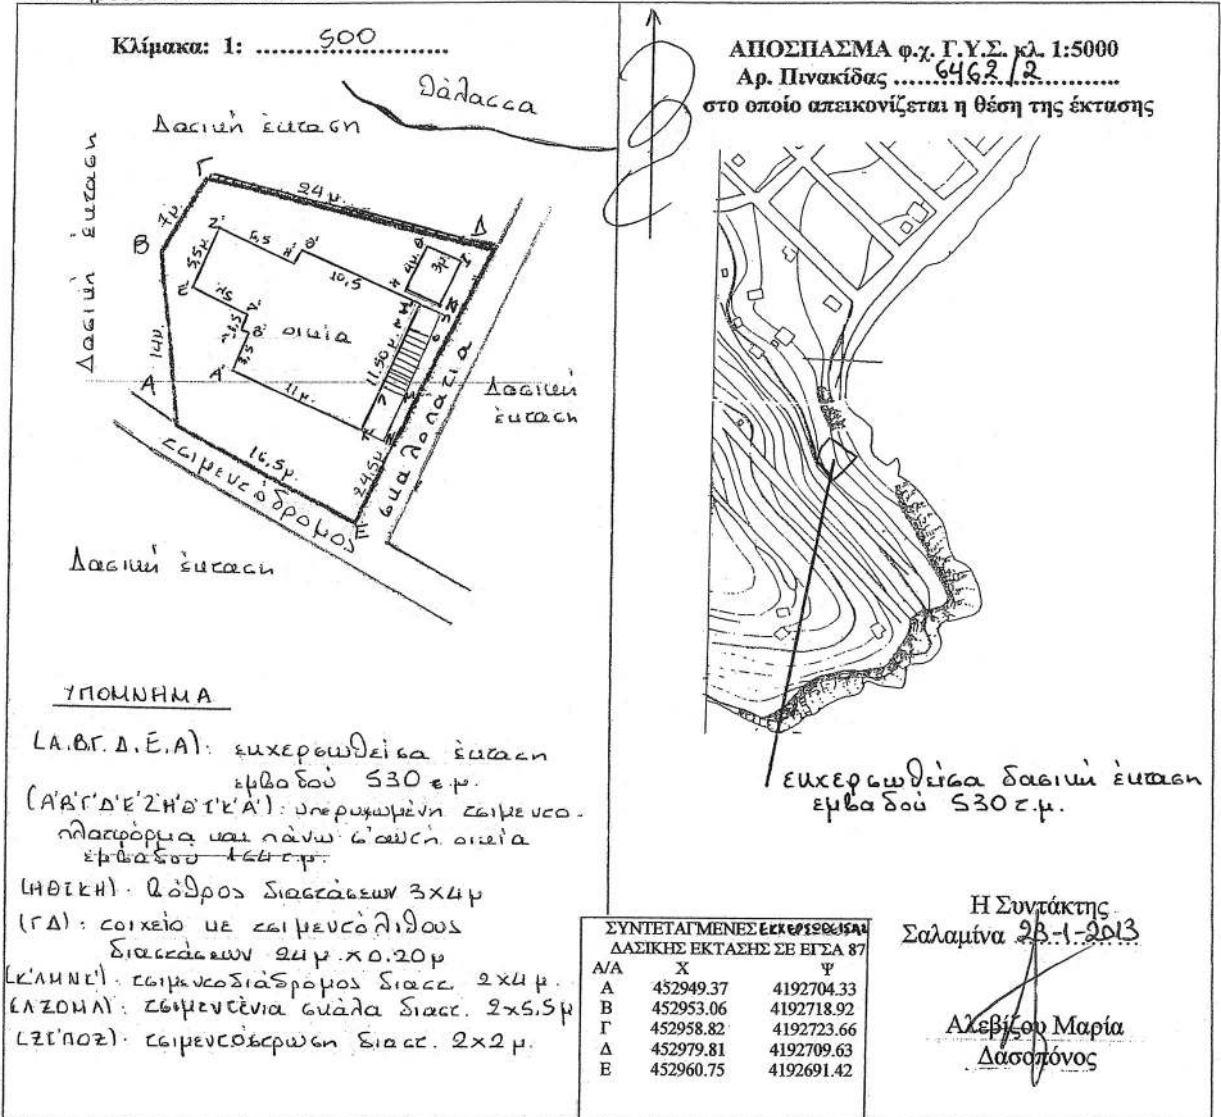 Κλίμακα: 1: ........500........
θάλασσα
Δασική έκταση
Δασική έκταση
Γ
24 μ.
Δ
7 μ.
Β
Ζ'
6,5
Η'
Θ'
10,5
4μ.
3μ
5,5μ.
Ε'
Δ'
Β'
3,5
Α'
οικία
11.50 μ.
11μ.
14μ.
Α
Δασική
έκταση
σκαλοπάτια
16,5μ.
24,5μ
Ε
τσιμεντόδρομος
Δασική έκταση
ΥΠΟΜΝΗΜΑ
(Α.Β.Γ.Δ.Ε.Α): εκχερσωθείσα έκταση
εμβαδού 530 τ.μ.
(Α'Β'Γ'Δ'Ε'Ζ'Η'Θ'Ι'Κ'Α'): υπερυψωμένη τσιμεντο-
πλατφόρμα και πάνω σ'αυτή οικία
εμβαδού 164 τ.μ.
(ΗΘΙΚΗ): Βόθρος διαστάσεων 3x4μ
(ΓΔ): τοιχείο με τσιμεντόλιθους
διαστάσεων 24μ. x 0.20μ
(Κ'ΛΜΝΚ'): τσιμεντοδιάδρομος διαστ. 2x4 μ.
(ΛΞΟΜΛ): τσιμεντένια σκάλα διαστ. 2x5,5μ
(ΞΙ'ΠΟΞ): τσιμεντόστρωση διαστ. 2x2 μ.
ΑΠΟΣΠΑΣΜΑ φ.χ. Γ.Υ.Σ. κλ. 1:5000
Αρ. Πινακίδας ......6462/2..............
στο οποίο απεικονίζεται η θέση της έκτασης
εκχερσωθείσα δασική έκταση
εμβαδού 530τ.μ.
ΣΥΝΤΕΤΑΓΜΕΝΕΣ ΕΚΧΕΡΣΩΘΕΙΣΑΣ
ΔΑΣΙΚΗΣ ΕΚΤΑΣΗΣ ΣΕ ΕΓΣΑ 87
Α/Α Χ Ψ
Α 452949.37 4192704.33
Β 452953.06 4192718.92
Γ 452958.82 4192723.66
Δ 452979.81 4192709.63
Ε 452960.75 4192691.42
Η Συντάκτης
Σαλαμίνα 23-1-2013
Αλεβίζου Μαρία
Δασοπόνος